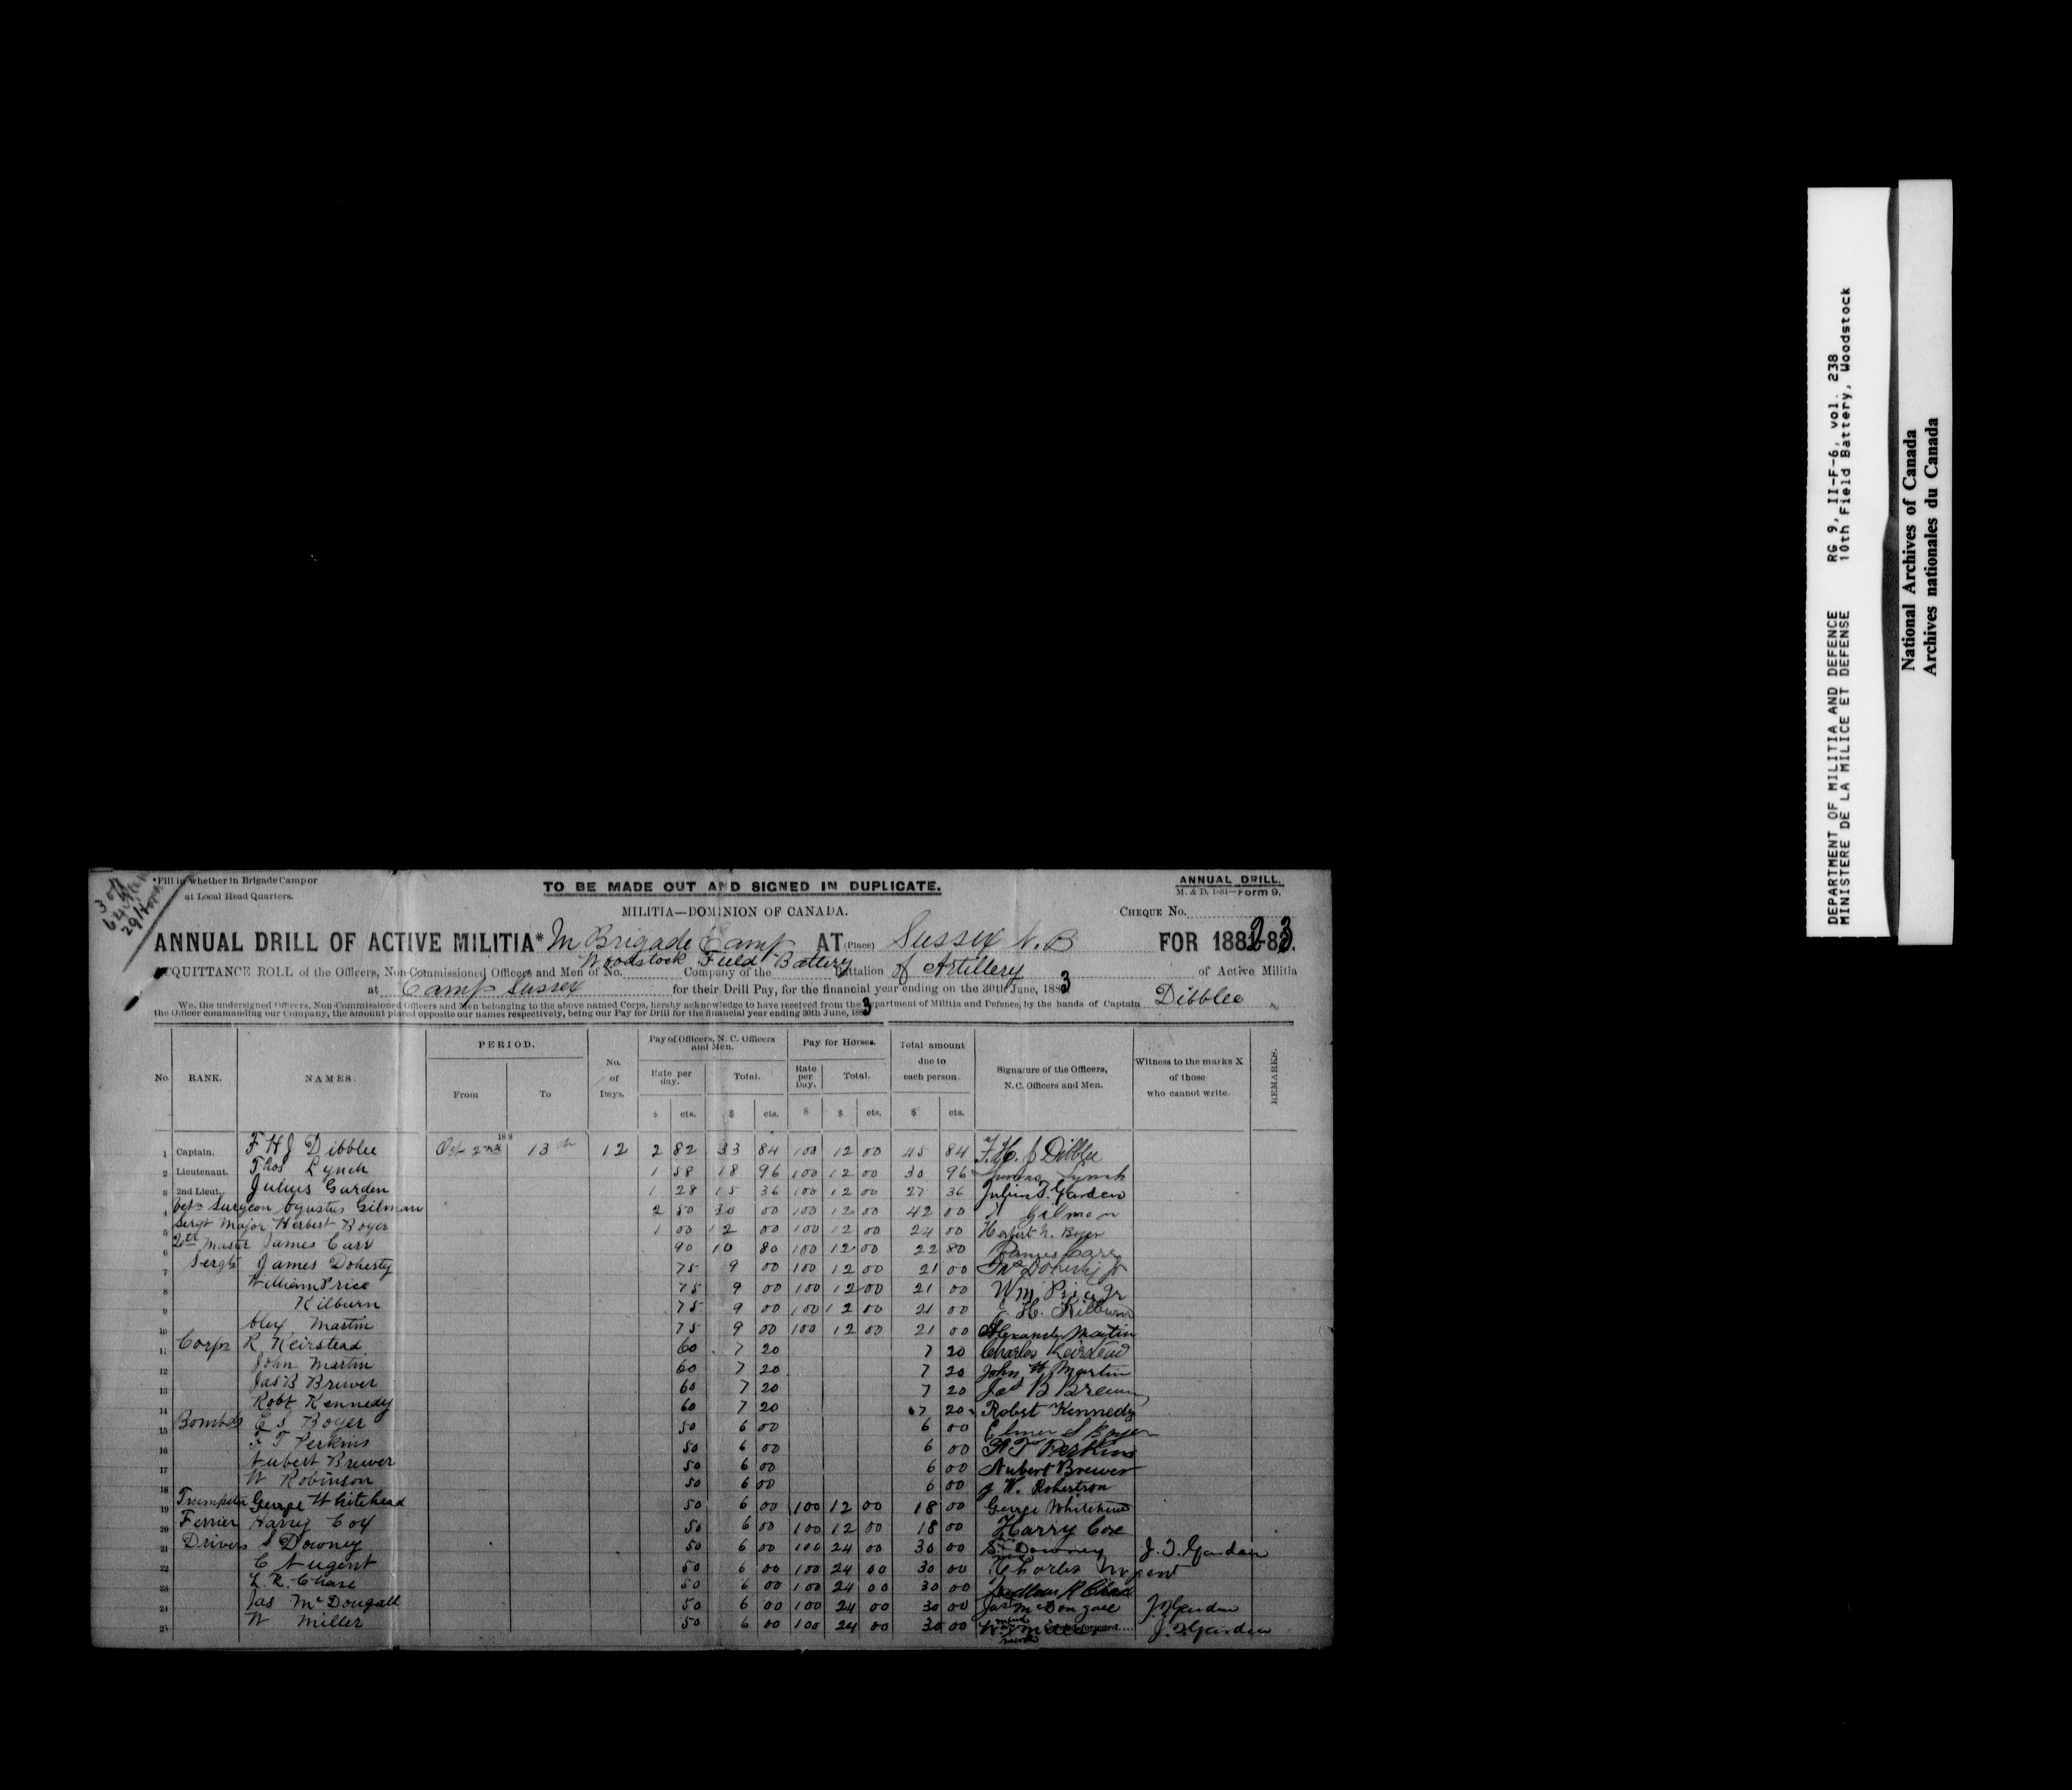 DEPARTMENT OF MILITIA AND DEFENCE RG 9, II-F-6, vol. 238
MINISTERE DE LA MILICE ET DEFENSE 10th Field Battery, Woodstock
National Archives of Canada
Archives nationales du Canada
*Fill in whether in Brigade Camp or
at Local Head Quarters.
TO BE MADE OUT AND SIGNED IN DUPLICATE.
ANNUAL DRILL.
M. & D. 1881—Form 9.
MILITIA—DOMINION OF CANADA.
CHEQUE No.
ANNUAL DRILL OF ACTIVE MILITIA* In Brigade Camp AT (Place) Sussex N.B FOR 1882-83.
Woodstock Field Battery
ACQUITTANCE ROLL of the Officers, Non-Commissioned Officers and Men of No. Company of the Battalion of Artillery of Active Militia
at Camp Sussex for their Drill Pay, for the financial year ending on the 30th June, 1883
We, the undersigned Officers, Non-Commissioned Officers and Men belonging to the above named Corps, hereby acknowledge to have received from the Department of Militia and Defence, by the hands of Captain Dibblee
the Officer commanding our Company, the amount placed opposite our names respectively, being our Pay for Drill for the financial year ending 30th June, 1883
No. RANK. NAMES. PERIOD. From To No. of Days. Pay of Officers, N. C. Officers and Men. Rate per day. Total. Pay for Horses. Rate per Day. Total. Total amount due to each person. Signature of the Officers, N.C. Officers and Men. Witness to the marks X of those who cannot write. REMARKS.
$ cts. $ cts. $ $ cts. $ cts.
188
1 Captain. F H J Dibblee Oct 2nd 13th 12 2 82 33 84 100 12 00 45 84 F. H. J Dibblee
2 Lieutenant. Thos Lynch 1 58 18 96 100 12 00 30 96 Lynch
3 2nd Lieut. Julius Garden 1 28 15 36 100 12 00 27 36 Julius T. Garden
4 Vety Surgeon Ogustus Gilman 2 50 30 00 100 12 00 42 00 Gilman
5 Sergt Major Herbert Boyer 1 00 12 00 100 12 00 24 00 Herbert Boyer
6 Master James Carr 90 10 80 100 12 00 22 80 James Carr
7 Sergts James Doherty 75 9 00 100 12 00 21 00 Jas Doherty Jr
8 William Price 75 9 00 100 12 00 21 00 Wm Price Jr
9 Kilburn 75 9 00 100 12 00 21 00 H. Kilburn
10 Alex Martin 75 9 00 100 12 00 21 00 Alexander Martin
11 Corps R Keirstead 60 7 20 7 20 Charles Keirstead
12 John Martin 60 7 20 7 20 John W Martin
13 Jas B Brewer 60 7 20 7 20 Jas B Brewer
14 Robt Kennedy 60 7 20 7 20 Robst Kennedy
15 Bombds E S Boyer 50 6 00 6 00 Elmer S Boyer
16 F T Perkins 50 6 00 6 00 F T Perkins
17 Hubert Brewer 50 6 00 6 00 Hubert Brewer
18 W Robinson 50 6 00 6 00 J W. Robertson
19 Trumpeter George Whitehead 50 6 00 100 12 00 18 00 George Whitehead
20 Ferrier Harry Cox 50 6 00 100 12 00 18 00 Harry Cox
21 Drivers S Downey 50 6 00 100 24 00 30 00 S. Downey J. T. Garden
22 C Nugent 50 6 00 100 24 00 30 00 Charles Nugent
23 L. R. Chase 50 6 00 100 24 00 30 00 Ludlow R Chase
24 Jas McDougall 50 6 00 100 24 00 30 00 Jas McDougall J T Garden
25 W Miller 50 6 00 100 24 00 30 00 W. Miller J. T. Garden